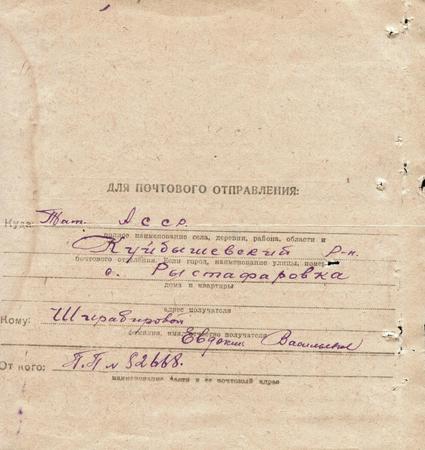 ДЛЯ ПОЧТОВОГО ОТПРАВЛЕНИЯ:
Куда: Тат. АССР
полное наименование села, деревни, района, области и
Куйбышевский р-н.
почтового отделения. Если город, наименование улицы, номер
с. Рыстафаровка
дома и квартиры
адрес получателя
Кому:
фамилия, имя, отчество получателя
Евдокии Васильевне
От кого: П.П № 92668.
наименование части и ее почтовый адрес